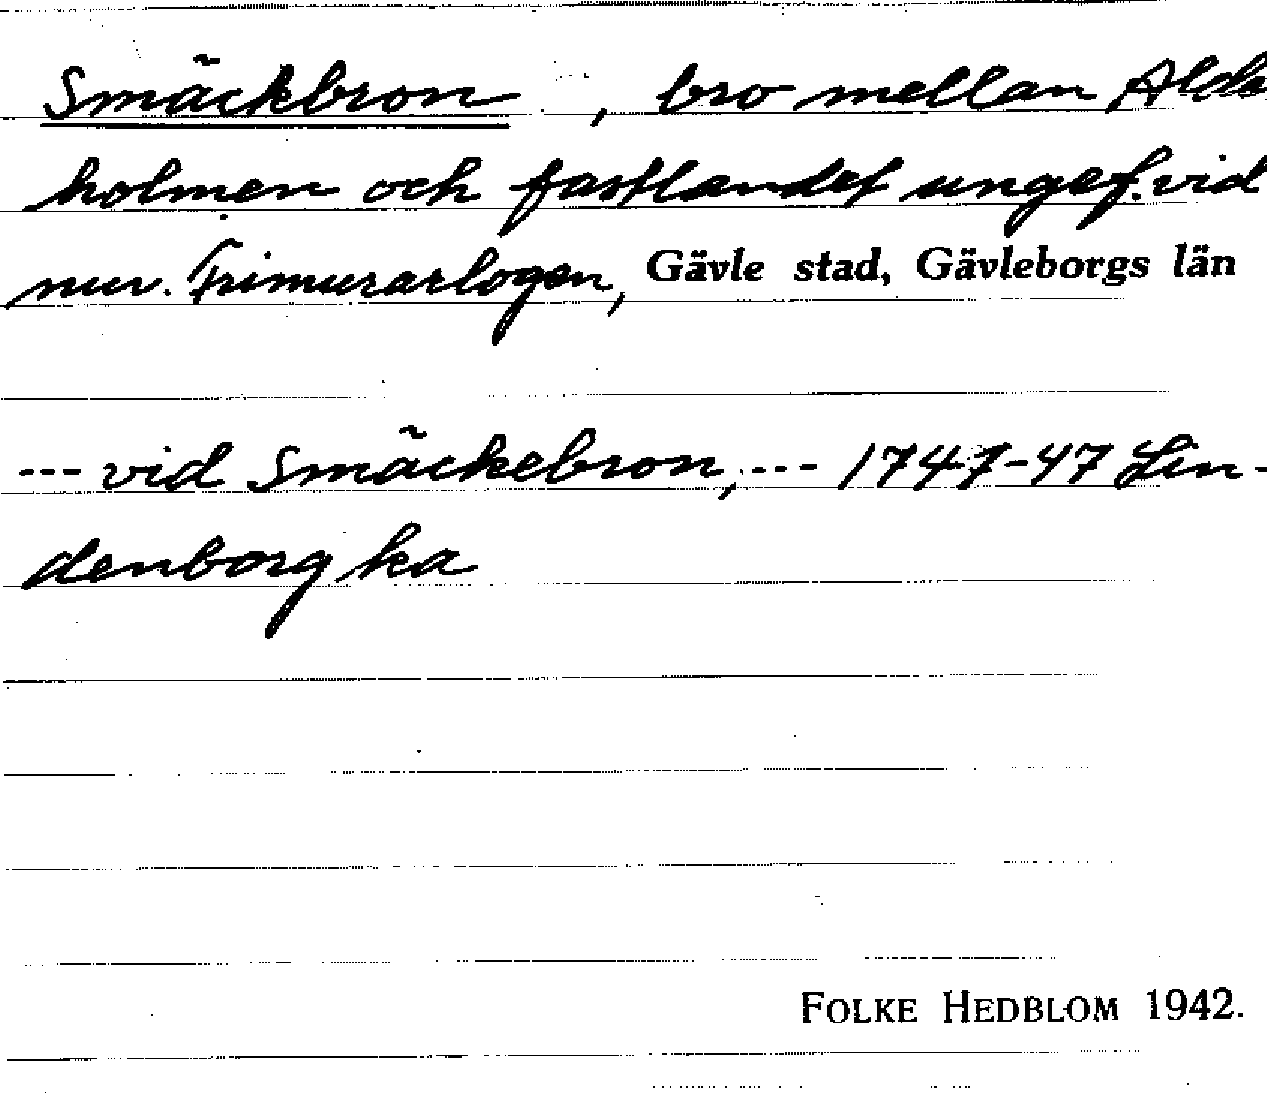 Smäckbron, bro mellan Alder
holmen och fastlandet ungef. vid
nuv. Frimurarlogen, Gävle stad, Gävleborgs län
--- vid Smäckebron, --- 1747-47 Lin-
denborg ka
FOLKE HEDBLOM 1942.